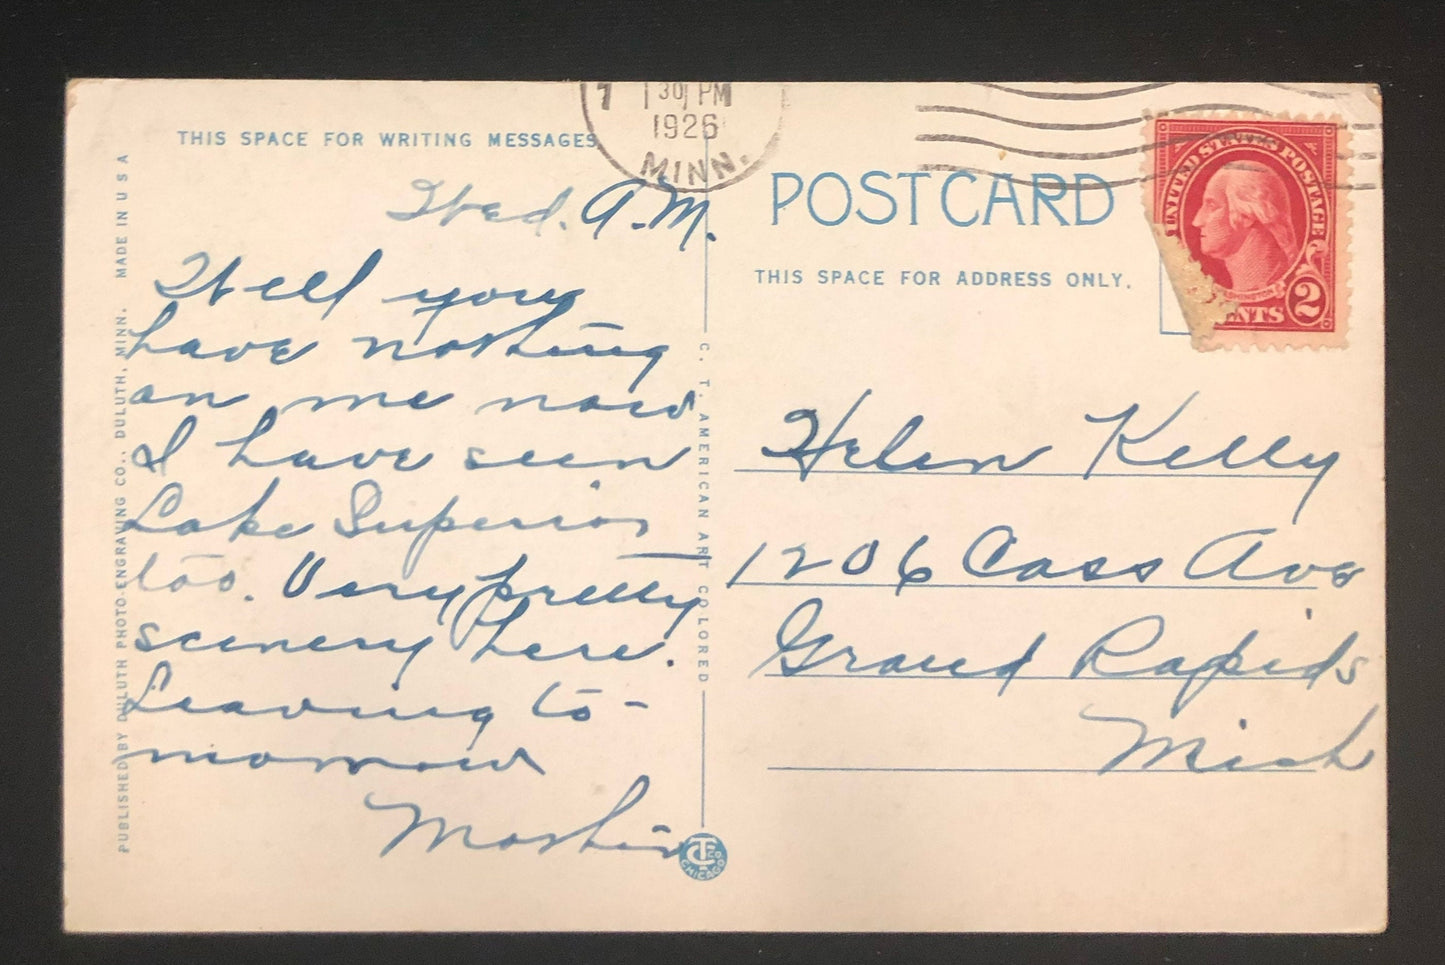 7 1 30 PM
1926
MINN.
THIS SPACE FOR WRITING MESSAGES
Wed. A.M.
Well you
have nothing
on me now
I have seen
Lake Superior
too. Very pretty
scenery here.
Leaving to-
morrow
PUBLISHED BY DULUTH PHOTO-ENGRAVING CO., DULUTH, MINN. MADE IN U S A
C. T. AMERICAN ART COLORED
CT CO
CHICAGO
POSTCARD
THIS SPACE FOR ADDRESS ONLY.
UNITED STATES POSTAGE
2
Helen Kelly
1206 Cass Ave
Grand Rapids
Mich